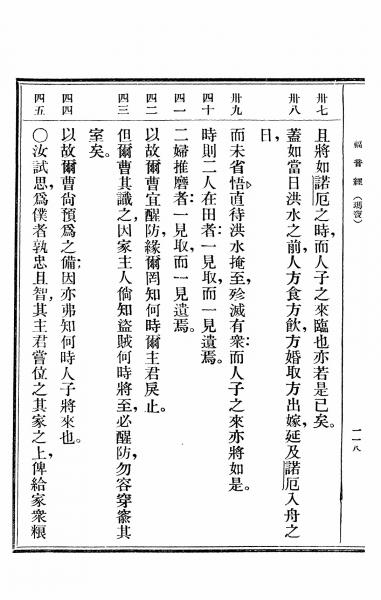 福音經（瑪竇）
一一八
卅七
且將如諾厄之時、而人子之來臨也亦若是已矣。
卅八
蓋如當日洪水之前、人方食方飲、方婚取方出嫁、延及諾厄入舟之
日、
卅九
而未省悟、直待洪水掩至、殄滅有衆：而人子之來亦將如是。
四十
時則二人在田者：一見取、而一見遺焉。
四一
二婦推磨者：一見取而一見遺焉。
四二
以故爾曹宜醒防、緣爾罔知何時爾主君戾止。
四三
但爾曹其識之、因家主人倘知盜賊何時將至、必醒防、勿容穿窬其
室矣。
四四
以故爾曹尙預爲之備；因亦弗知何時人子將來也。
四五
〇汝試思、爲僕者孰忠且智、其主君嘗位之其家之上、俾給家衆糧